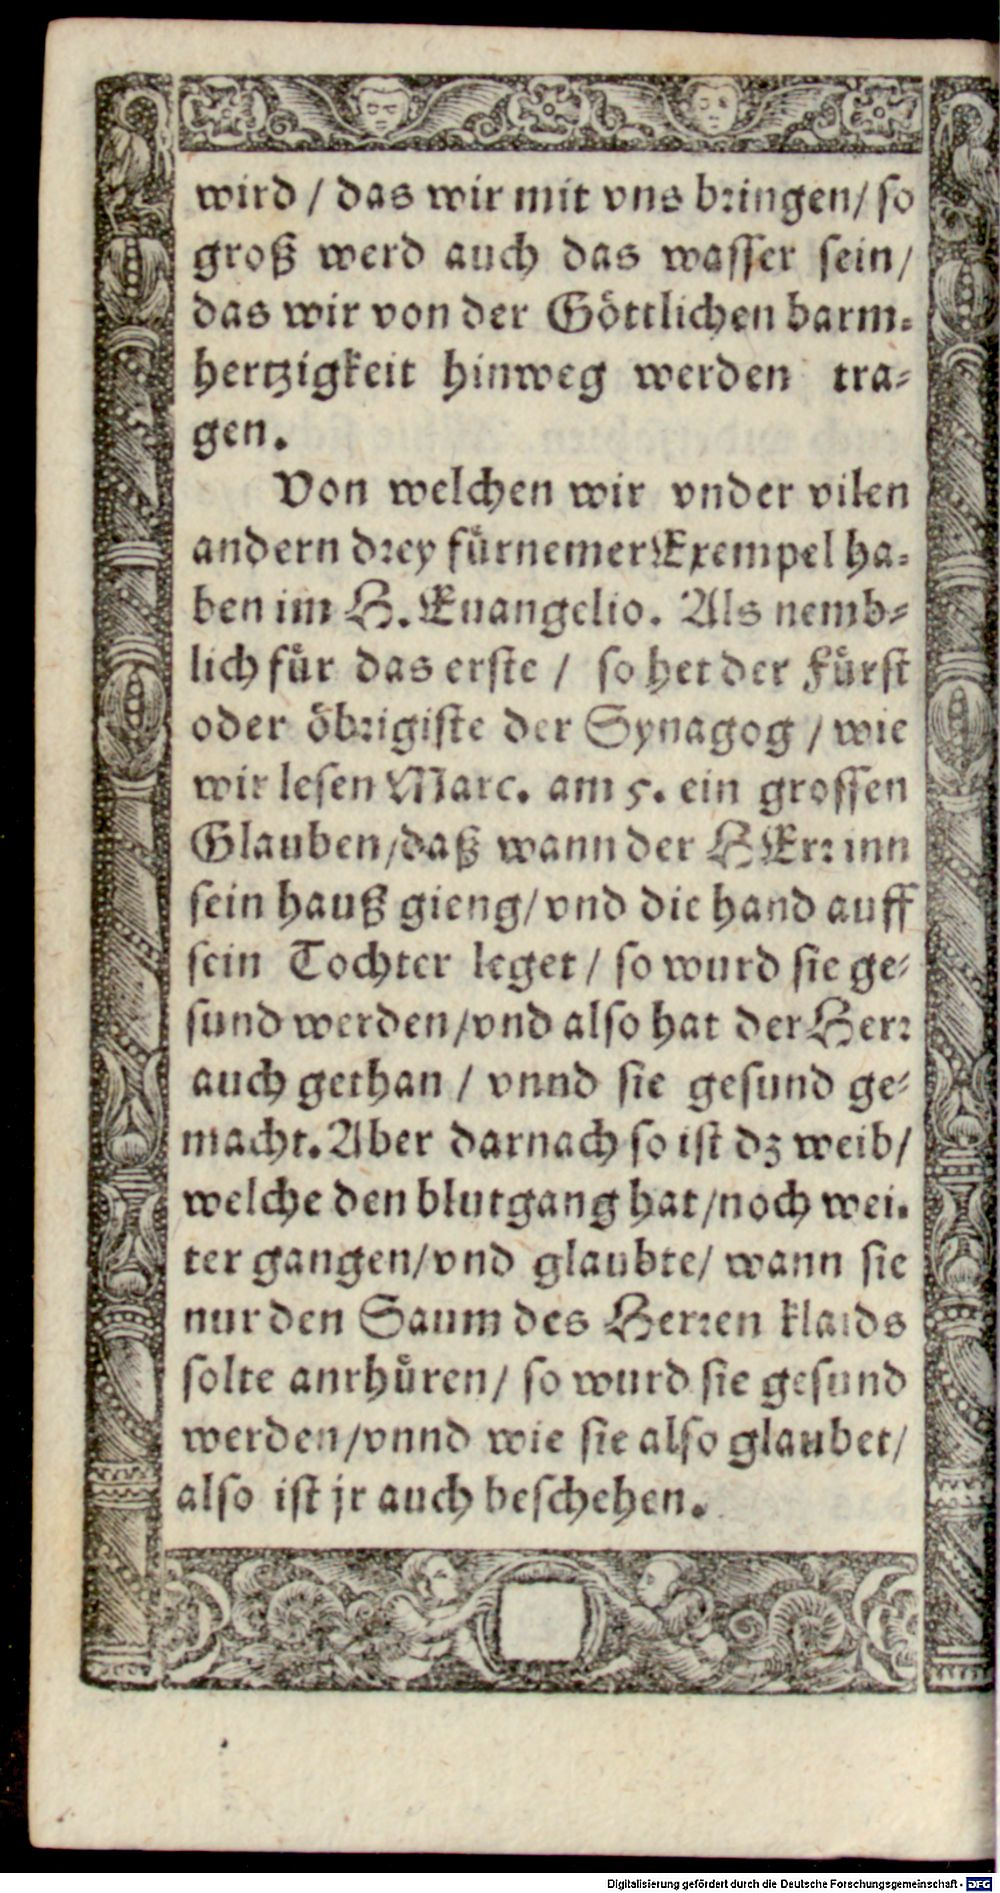 wird / das wir mit vns bringen/ so
groß werd auch das wasser sein/
das wir von der Göttlichen barm-
hertzigkeit hinweg werden tra-
gen.
Von welchen wir vnder vilen
andern drey fürnemer Exempel ha-
ben im H. Euangelio. Als nemb-
lich für das erste / so het der Fürst
oder öbrigiste der Synagog / wie
wir lesen Marc. am 5. ein grossen
Glauben/daß wann der HErr inn
sein hauß gieng/ vnd die hand auff
sein Tochter leget / so wurd sie ge-
sund werden/vnd also hat der Herr
auch gethan / vnnd sie gesund ge-
macht. Aber darnach so ist dz weib/
welche den blutgang hat/noch wei-
ter gangen/vnd glaubte/ wann sie
nur den Saum des Herren klaids
solte anrhüren/ so wurd sie gesund
werden/vnnd wie sie also glaubet/
also ist jr auch beschehen.
Digitalisierung gefördert durch die Deutsche Forschungsgemeinschaft - DFG